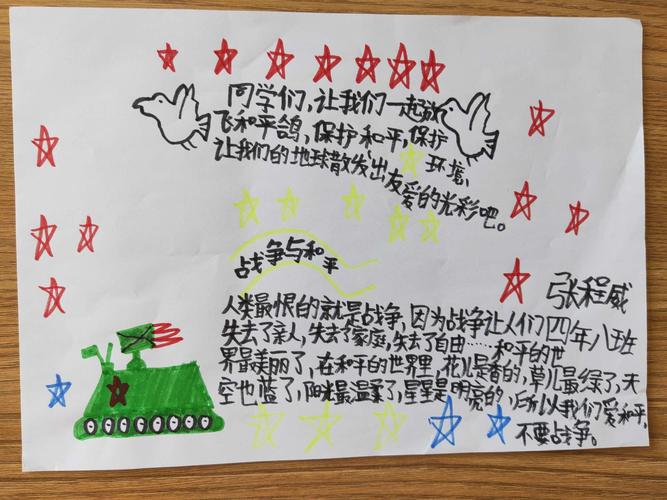 同学们,让我们一起放
飞和平鸽,保护和平,保护
环境、
让我们的地球散发出友爱的光彩吧。
战争与和平
张程威
四年八班
人类最恨的就是战争,因为战争让人们
失去了亲人,失去了家庭,失去了自由……和平的世
界最美丽了,在和平的世界里,花儿是香的,草儿最绿了,天
空也蓝了,阳光最温柔了,星星是明亮的,所以我们爱和平,
不要战争。